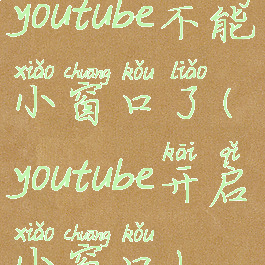 youtube不能
xiǎo chuāng kǒu liǎo
小窗口了(
kāi qǐ
youtube开启
xiǎo chuāng kǒu
小窗口)